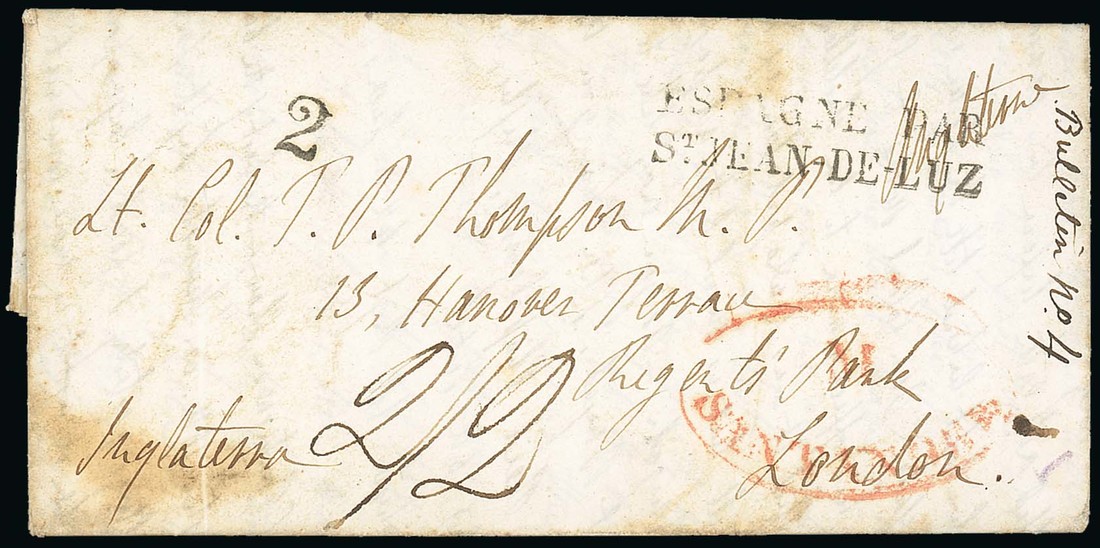 2
ESPAGNE PAR
ST JEAN-DE-LUZ
Lt. Col. T. P. Thompson M. P.
13, Hanover Terrace
Regents Park
London.
Inglaterra
2/2
Bulletin No. 4